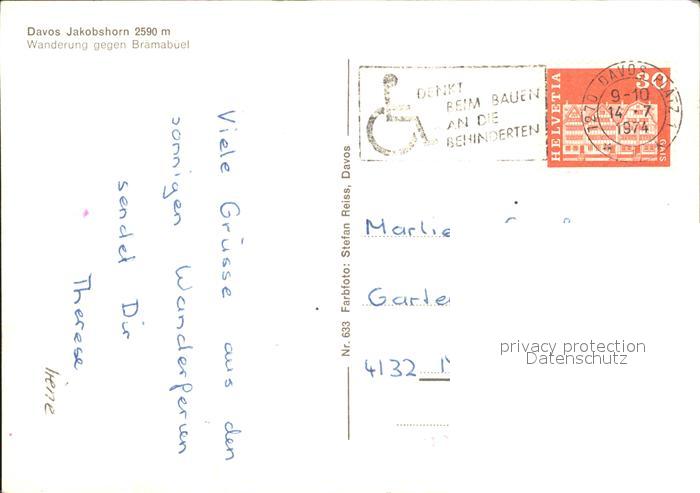 Davos Jakobshorn 2590 m
Wanderung gegen Bramabuel
Viele Grüsse aus den
sonnigen Wanderferien
sendet Dir
Therese
Nr. 633 Farbfoto: Stefan Reiss, Davos
DENKT
BEIM BAUEN
AN DIE
BEHINDERTEN
HELVETIA
30
GAIS
7270 DAVOS PLATZ 1
9-10
14 7
1974
Marlie
Garte
4132
privacy protection
Datenschutz